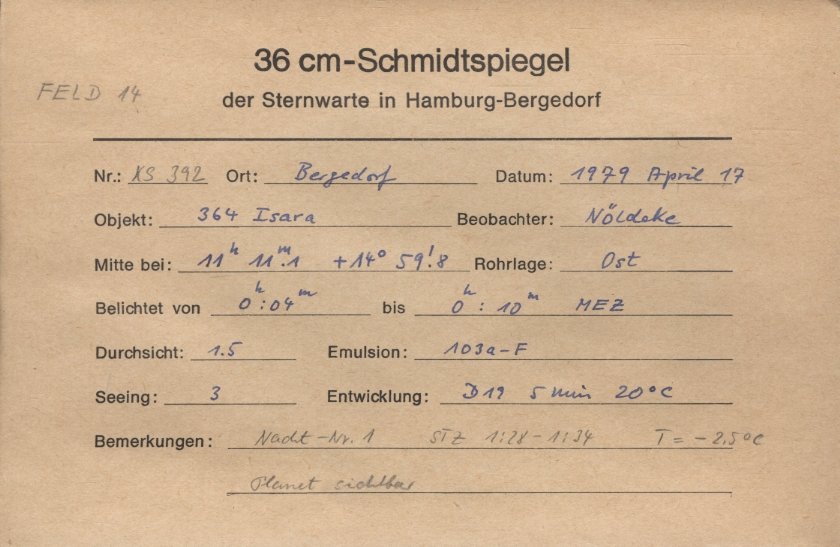 36 cm-Schmidtspiegel
FELD 14
der Sternwarte in Hamburg-Bergedorf
Nr.: KS 392 Ort: Bergedorf Datum: 1979 April 17
Objekt: 364 Isara Beobachter: Nöldeke
Mitte bei: 11h 11m.1 +14° 59!8 Rohrlage: Ost
Belichtet von 0h:04m bis 0h:10m MEZ
Durchsicht: 1.5 Emulsion: 103a-F
Seeing: 3 Entwicklung: D19 5 min 20°C
Bemerkungen: Nacht-Nr. 1 STZ 1:28-1:34 T = -2.5°C
Planet sichtbar